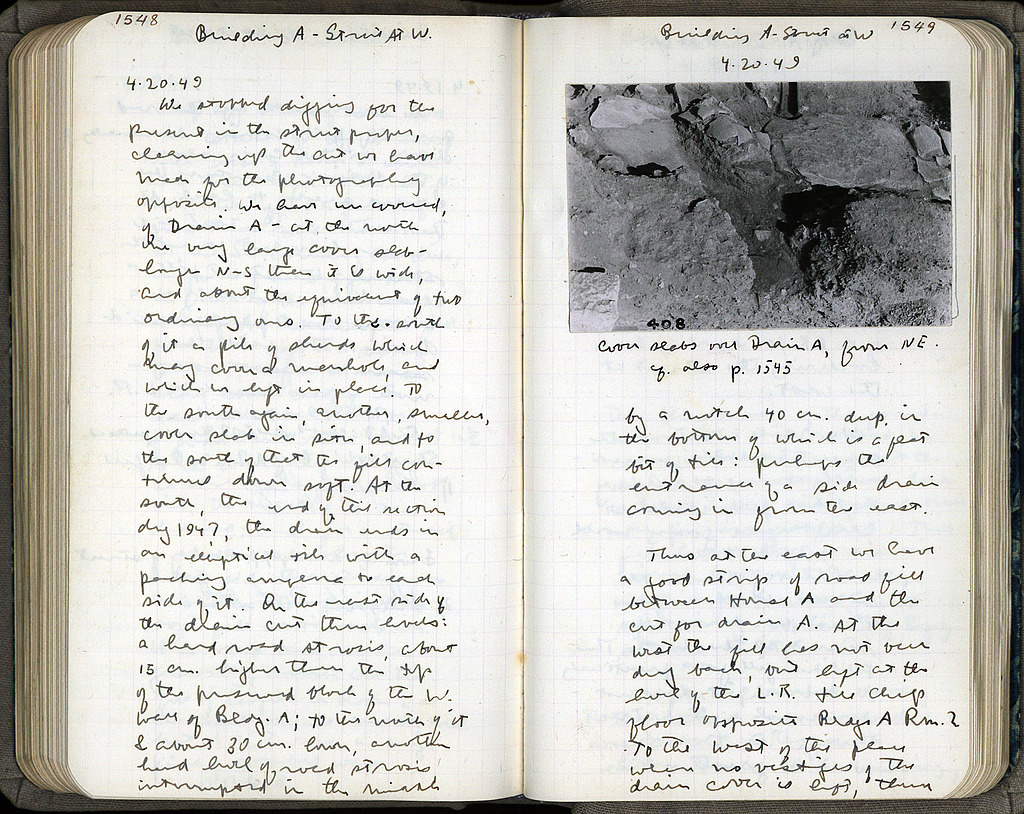 1548
Building A - Street at W.
4.20.49
We stopped digging for the
present in the street proper,
cleaning up the cut we have
made for the photography
opposite. We have uncovered,
of Drain A - at the north
the very large cover slab -
longer N-S than it is wide,
and about the equivalent of two
ordinary ones. To the south
of it a pile of sherds which
may cover a manhole, and
which we left in place. To
the south again, another smaller,
cover slab in situ, and to
the south of that the fill con-
tinued down soft. At the
south, the end of the section
dug 1947, the drain ends in
an elliptical tile with a
packing amphora to each
side of it. On the west side of
the drain cut three levels:
a hard road strosis, about
15 cm. higher than the top
of the preserved block of the W.
wall of Bldg. A; to the north of it
& about 30 cm. lower, another
hard level of road strosis,
interrupted in the middle
1549
Building A - Street at W
4.20.49
408
Cover slabs over Drain A, from NE.
cf. also p. 1545
by a notch 40 cm. deep, in
the bottom of which is a flat
bit of tile: perhaps the
entrance of a side drain
coming in from the east.
Thus at the east we have
a good strip of road fill
between House A and the
cut for drain A. At the
west the fill has not been
dug back, but left at the
level of the L.R. tile chip
floor opposite Bldg A Rm. 2
To the west of the place
where no vestiges of the
drain cover is left, then